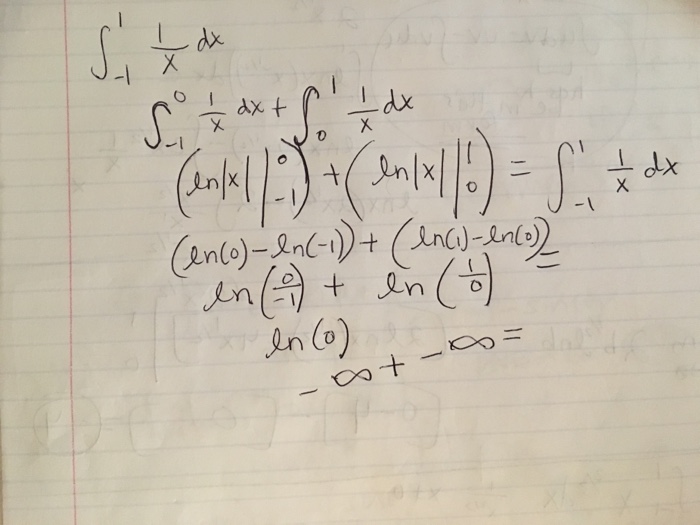 ∫_{-1}^{1} 1/x dx
∫_{-1}^{0} 1/x dx + ∫_{0}^{1} 1/x dx
(ln|x| |_{-1}^{0}) + (ln|x| |_{0}^{1}) = ∫_{-1}^{1} 1/x dx
(ln(0)-ln(-1)) + (ln(1)-ln(0)) =
ln(0/-1) + ln(1/0)
ln(0)
-∞ + -∞ =